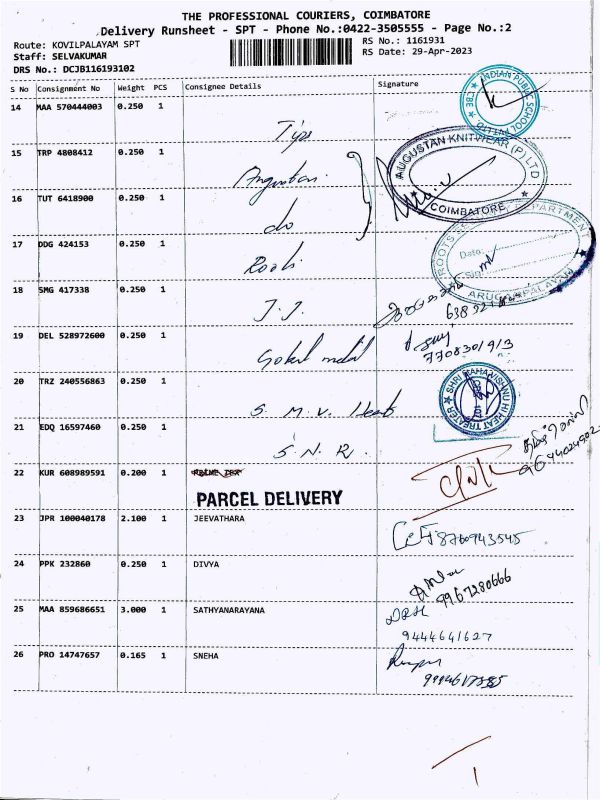 THE PROFESSIONAL COURIERS, COIMBATORE
Delivery Runsheet - SPT - Phone No.:0422-3505555 - Page No.:2
Route: KOVILPALAYAM SPT
Staff: SELVAKUMAR
DRS No.: DCJB116193102
RS No.: 1161931
RS Date: 29-Apr-2023
S No Consignment No Weight PCS Consignee Details Signature
14 MAA 570444003 0.250 1 Tips
INDIAN PUBLIC SCHOOL CBE
15 TRP 4808412 0.250 1 Angustan
AUGUSTAN KNITWEAR (P) LTD COIMBATORE
16 TUT 6418900 0.250 1 do
17 DDG 424153 0.250 1 Roots
ROOTS DEPARTMENT
Date:
Sig
18 SMG 417338 0.250 1 J.J.
19 DEL 528972600 0.250 1 Gokul metal
7708301913
20 TRZ 240556863 0.250 1 S. M. V. Heat
SHRI MAHAVISHNU HI HEAT TREATER
21 EDQ 16597460 0.250 1 S. N. R.
22 KUR 608989591 0.200 1
PARCEL DELIVERY
23 JPR 100040178 2.100 1 JEEVATHARA 8760943545
24 PPK 232860 0.250 1 DIVYA
9967280666
25 MAA 859686651 3.000 1 SATHYANARAYANA
9444641627
26 PRO 14747657 0.165 1 SNEHA